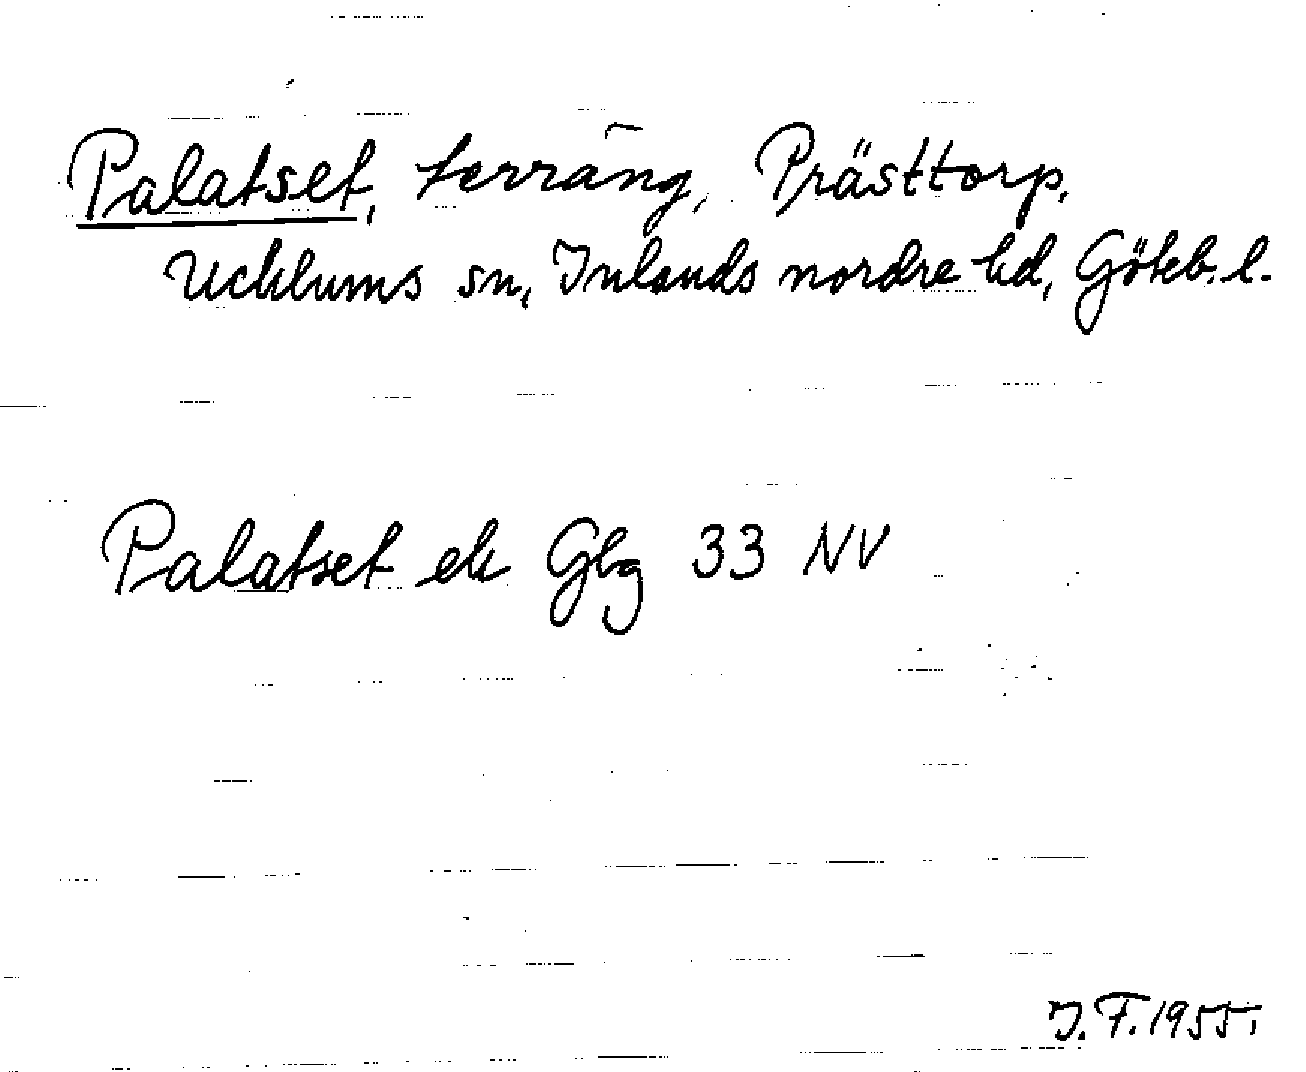 Palatset, terräng, Prästtorp,
Ucklums sn, Inlands nordre hd, Göteb. l.
Palatset ek Gbg 33 NV
J. F. 1955.